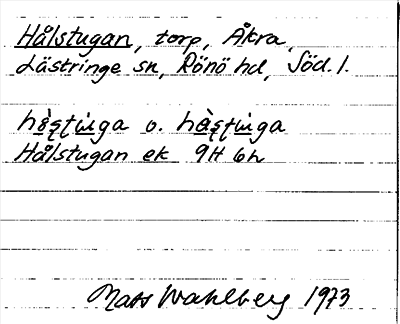 Hålstugan, torp, Åkra,
Lästringe sn, Rönö hd, Söd. l.
hò̱ʂʈɯga o. hàʂʈɯga
Hålstugan ek 9H 6h
Mats Wahlberg 1973